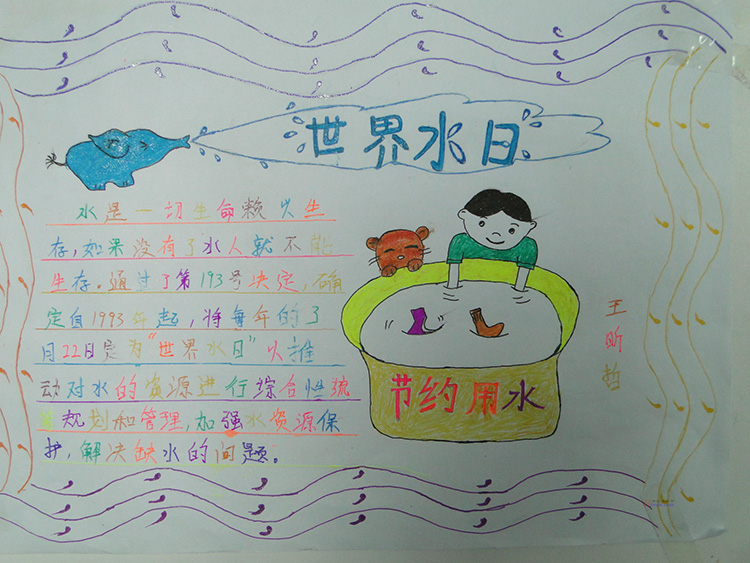 世界水日
水是一切生命赖以生
存,如果没有了水人就不能
生存。通过了第193号决定,确
定自1993年起,将每年的3
月22日定为“世界水日”以推
动对水的资源进行综合性统
筹规划和管理,加强水资源保
护,解决缺水的问题。
节约用水
王昕哲